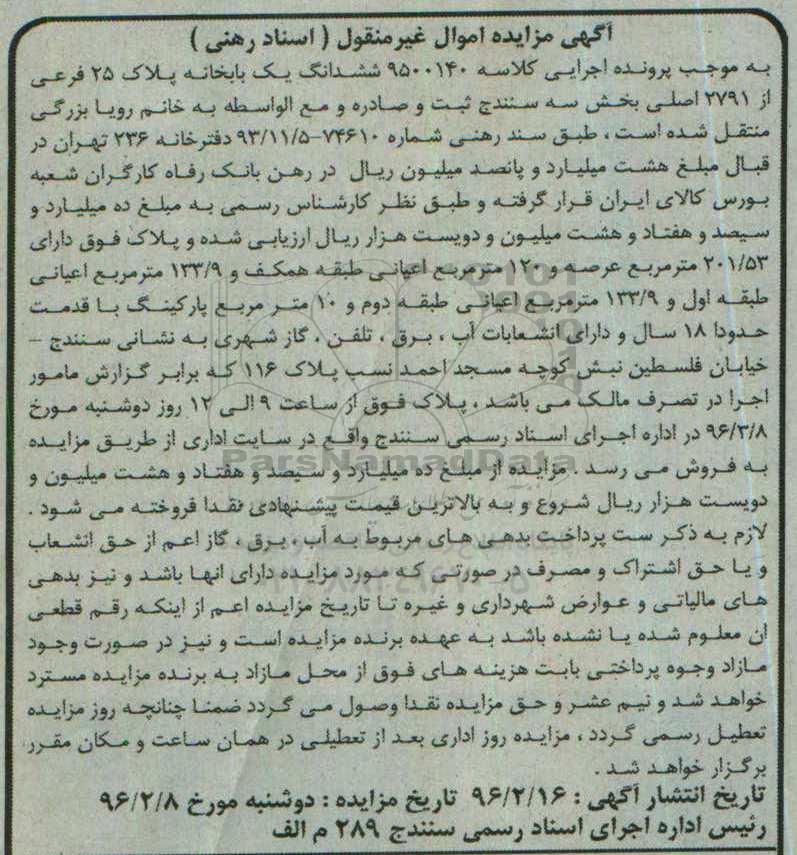 آگهی مزایده اموال غیرمنقول ( اسناد رهنی )
به موجب پرونده اجرایی کلاسه ۹۵۰۰۱۴۰ ششدانگ یک بابخانه پلاک ۲۵ فرعی
از ۲۷۹۱ اصلی بخش سه سنندج ثبت و صادره و مع الواسطه به خانم رویا بزرگی
منتقل شده است ، طبق سند رهنی شماره ۷۴۶۱۰-۹۳/۱۱/۵ دفترخانه ۲۳۶ تهران در
قبال مبلغ هشت میلیارد و پانصد میلیون ریال در رهن بانک رفاه کارگران شعبه
بورس کالای ایران قرار گرفته و طبق نظر کارشناس رسمی به مبلغ ده میلیارد و
سیصد و هفتاد و هشت میلیون و دویست هزار ریال ارزیابی شده و پلاک فوق دارای
۲۰۱/۵۳ مترمربع عرصه و ۱۲۰ مترمربع اعیانی طبقه همکف و ۱۳۳/۹ مترمربع اعیانی
طبقه اول و ۱۳۳/۹ مترمربع اعیانی طبقه دوم و ۱۰ متر مربع پارکینگ با قدمت
حدودا ۱۸ سال و دارای انشعابات آب ، برق ، تلفن ، گاز شهری به نشانی سنندج –
خیابان فلسطین نبش کوچه مسجد احمد نسب پلاک ۱۱۶ که برابر گزارش مامور
اجرا در تصرف مالک می باشد ، پلاک فوق از ساعت ۹ الی ۱۲ روز دوشنبه مورخ
۹۶/۳/۸ در اداره اجرای اسناد رسمی سنندج واقع در سایت اداری از طریق مزایده
به فروش می رسد . مزایده از مبلغ ده میلیارد و سیصد و هفتاد و هشت میلیون و
دویست هزار ریال شروع و به بالاترین قیمت پیشنهادی نقدا فروخته می شود .
لازم به ذکر ست پرداخت بدهی های مربوط به آب ، برق ، گاز اعم از حق انشعاب
و یا حق اشتراک و مصرف در صورتی که مورد مزایده دارای انها باشد و نیز بدهی
های مالیاتی و عوارض شهرداری و غیره تا تاریخ مزایده اعم از اینکه رقم قطعی
ان معلوم شده یا نشده باشد به عهده برنده مزایده است و نیز در صورت وجود
مازاد وجوه پرداختی بابت هزینه های فوق از محل مازاد به برنده مزایده مسترد
خواهد شد و نیم عشر و حق مزایده نقدا وصول می گردد ضمنا چنانچه روز مزایده
تعطیل رسمی گردد ، مزایده روز اداری بعد از تعطیلی در همان ساعت و مکان مقرر
برگزار خواهد شد .
تاریخ انتشار آگهی : ۹۶/۲/۱۶ تاریخ مزایده : دوشنبه مورخ ۹۶/۲/۸
رئیس اداره اجرای اسناد رسمی سنندج ۲۸۹ م الف
ParsNamadData